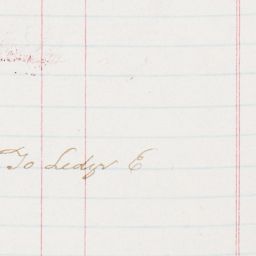 To Ledgr E